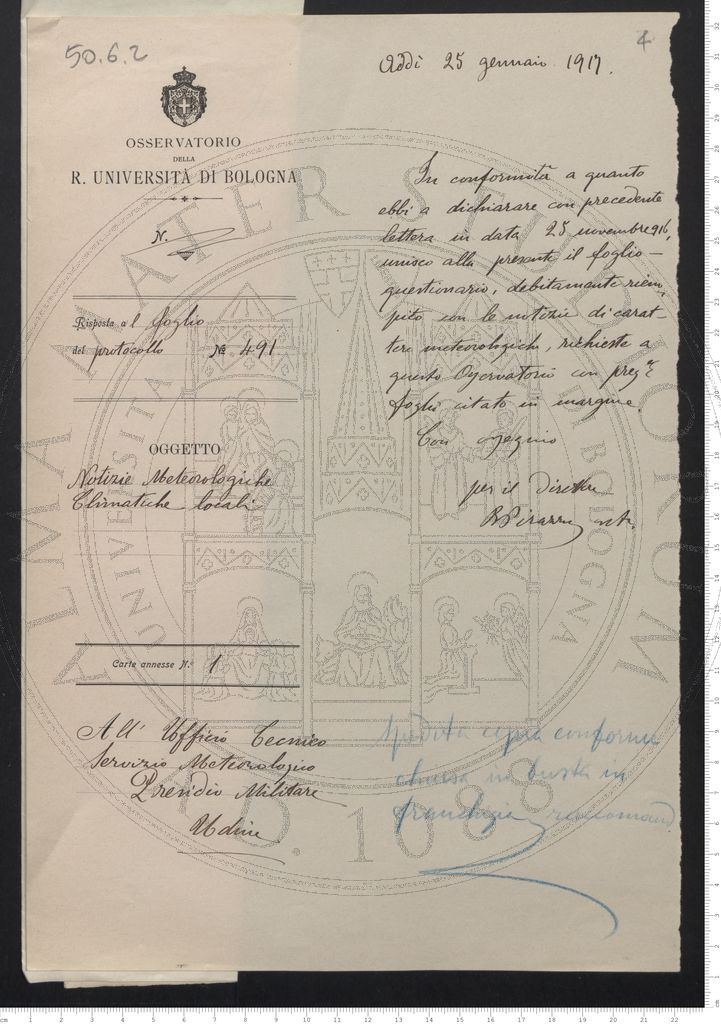 50.6.2
4
Addì 25 gennaio 1917.
OSSERVATORIO
DELLA
R. UNIVERSITÀ DI BOLOGNA
N.
Risposta al foglio
del protocollo N.º 491
OGGETTO
Notizie Meteorologiche
Climatiche locali
Carte annesse N.º 1
All' Ufficio Tecnico
Servizio Meteorologico
Presidio Militare
Udine
In conformità a quanto
ebbi a dichiarare con precedente
lettera in data 25 novembre 916,
unisco alla presente il foglio-
questionario, debitamente riem-
pito con le notizie di carat-
tere meteorologiche, richieste a
questo Osservatorio con preg.
foglio citato in margine.
Con
per il Direttore
Spedita copia conforme
chiusa in busta in
franchigia raccomand
ALMA MATER STUDIORUM
UNIVERSITÀ DI BOLOGNA
A.D. 1088